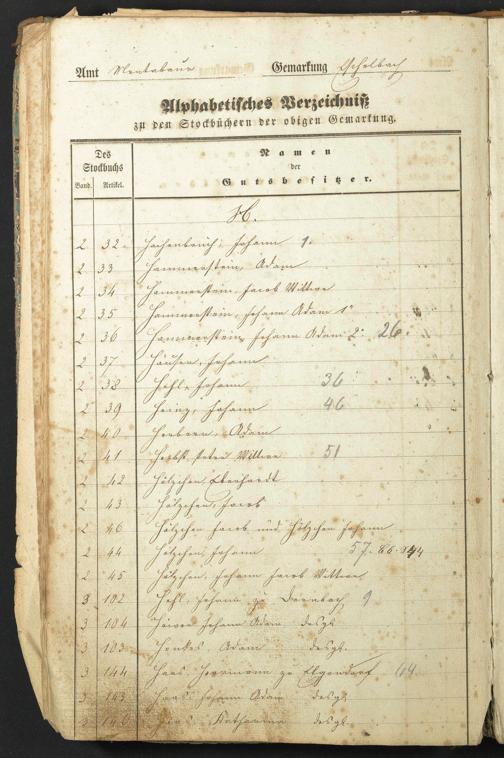 Amt Montabaur Gemarkung Eschelbach
Alphabetisches Verzeichniß
zu den Stockbüchern der obigen Gemarkung.
Des Stockbuchs
Band. Artikel.
Namen
der
Gutsbesitzer.
H.
2 32 Hachenbruch, Johann 1.
2 33 Hammerstein, Adam
2 34 Hammerstein, Jacob Wittwe
2 35 Hammerstein, Johann Adam 1r
2 36 Hammerstein, Johann Adam 2r 26.
2 37 Johann
2 38 Hehl, Johann 36
2 39 Heinz, Johann 46
2 40 Adam
2 41 Herbst, Peter Wittwe 51
2 42 Hölzchen, Eberhardt
2 43 Hölzchen, Jacob
2 46 Hölzchen Jacob und Hölzchen Johann
2 44 Hölzchen, Johann 57. 86.
2 45 Hölzchen, Johann Jacob Wittwe
3 102 Hehl, Johann zu 9
3 104 Johann Adam desgl.
3 103 Adam desgl.
3 144 Haas Hermann zu Elgendorf 64.
3 145 Haas Johann Adam desgl.
3 146 Haas Katharina desgl.